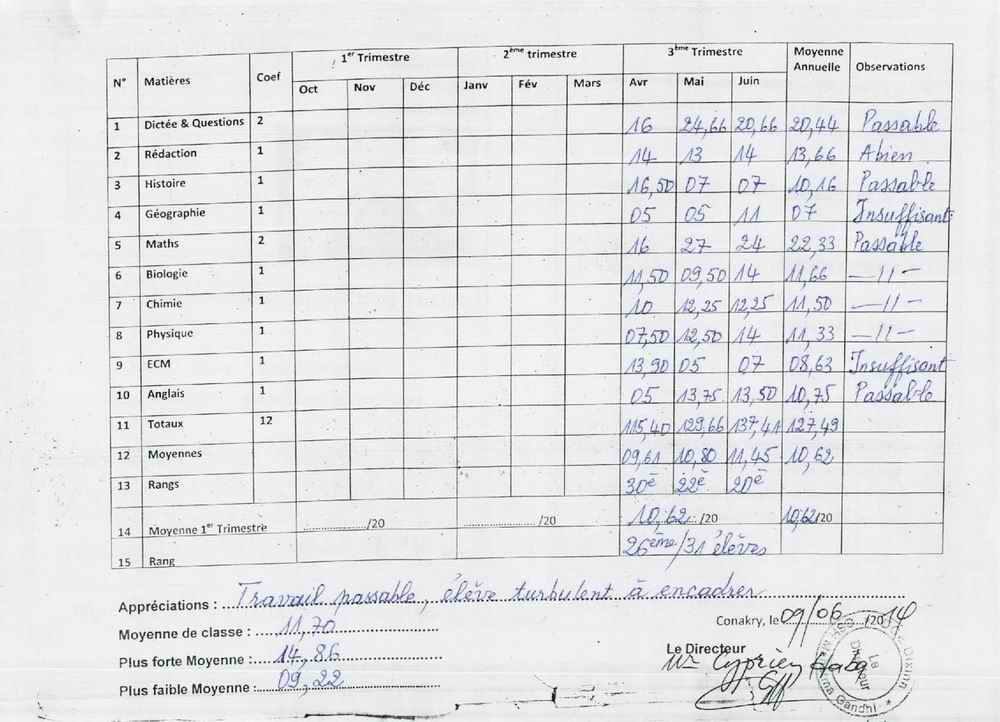 N° Matières Coef 1er Trimestre 2ème trimestre 3ème Trimestre Moyenne Annuelle Observations
Oct Nov Déc Janv Fév Mars Avr Mai Juin
1 Dictée & Questions 2 16 24,66 20,66 20,44 Passable
2 Rédaction 1 14 13 14 13,66 Abien
3 Histoire 1 16,50 07 07 10,16 Passable
4 Géographie 1 05 05 11 07 Insuffisant
5 Maths 2 16 27 24 22,33 Passable
6 Biologie 1 11,50 09,50 14 11,66 —//—
7 Chimie 1 10 12,25 12,25 11,50 —//—
8 Physique 1 07,50 12,50 14 11,33 —//—
9 ECM 1 13,90 05 07 08,63 Insuffisant
10 Anglais 1 05 13,75 13,50 10,75 Passable
11 Totaux 12 115,40 129,66 137,41 127,49
12 Moyennes 09,61 10,80 11,45 10,62
13 Rangs 30è 22è 20è
14 Moyenne 1er Trimestre ................/20 ................/20 10,62../20 10,62/20
15 Rang 26ème/31 élèves
Appréciations : Travail passable, élève turbulent à encadrer
Moyenne de classe : 11,70
Plus forte Moyenne : 14,86
Plus faible Moyenne : 09,22
Conakry, le 09/06/2014
Le Directeur
Mr Cyprien Haba
Le Directeur
Gandhi
Dixinn